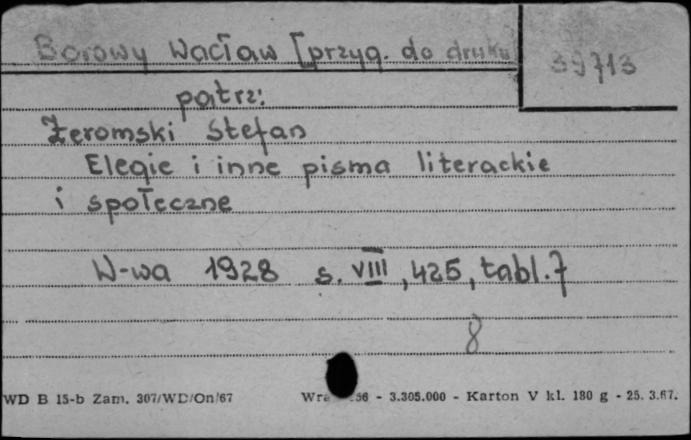 Borowy Wacław [przyg. do druku
39713
patrz:
Żeromski Stefan
Elegie i inne pisma literackie
i społeczne
W-wa 1928 s. VIII, 425, tabl. 7
8
WD B 15-b Zam. 307/WD/On/67
56 - 3.305.000 - Karton V kl. 180 g - 25. 3.67.